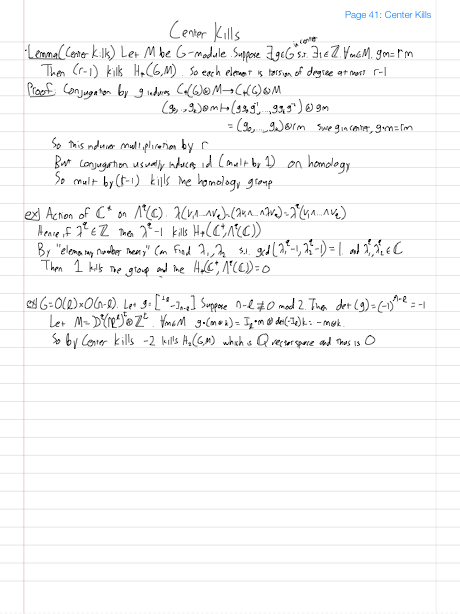 Page 41: Center Kills
Center Kills
Lemma (Center Kills) Let M be G-module. Suppose ∃g∈G in center s.t. ∃r∈Z ∀m∈M. gm=rm
Then (r-1) kills H*(G,M). So each element is torsion of degree at most r-1
Proof: Conjugation by g induces C*(G)⊗M→C*(G)⊗M
(g₀,...,gₖ)⊗m↦(gg₀g⁻¹,...,ggₖg⁻¹)⊗gm
=(g₀,...,gₖ)⊗rm since g in center, gm=rm
So this induces multiplication by r
But conjugation usually induces id (mult by 1) on homology
So mult by (r-1) kills the homology group
ex) Action of C* on Λ^q(C). λ(v₁∧...∧v_q)=(λv₁∧...∧λv_q)=λ^q(v₁∧...∧v_q)
Hence if λ^q∈Z then λ^q-1 kills H*(C*,Λ^q(C))
By "elementary number theory" can find λ₁,λ₂ s.t. gcd(λ₁^q-1,λ₂^q-1)=1 and λ₁^q,λ₂^q∈
Then 1 kills the group and the H*(C*,Λ^q(C))=0
ex) G=O(l)×O(n-l). Let g= Suppose n-l≢0 mod 2. Then det(g)=(-1)^{n-l}=-1
Let M= ∀m∈M g·(m⊗k)= =-m⊗k.
So by Center Kills -2 kills (G,M) which is Q vector space and thus is 0